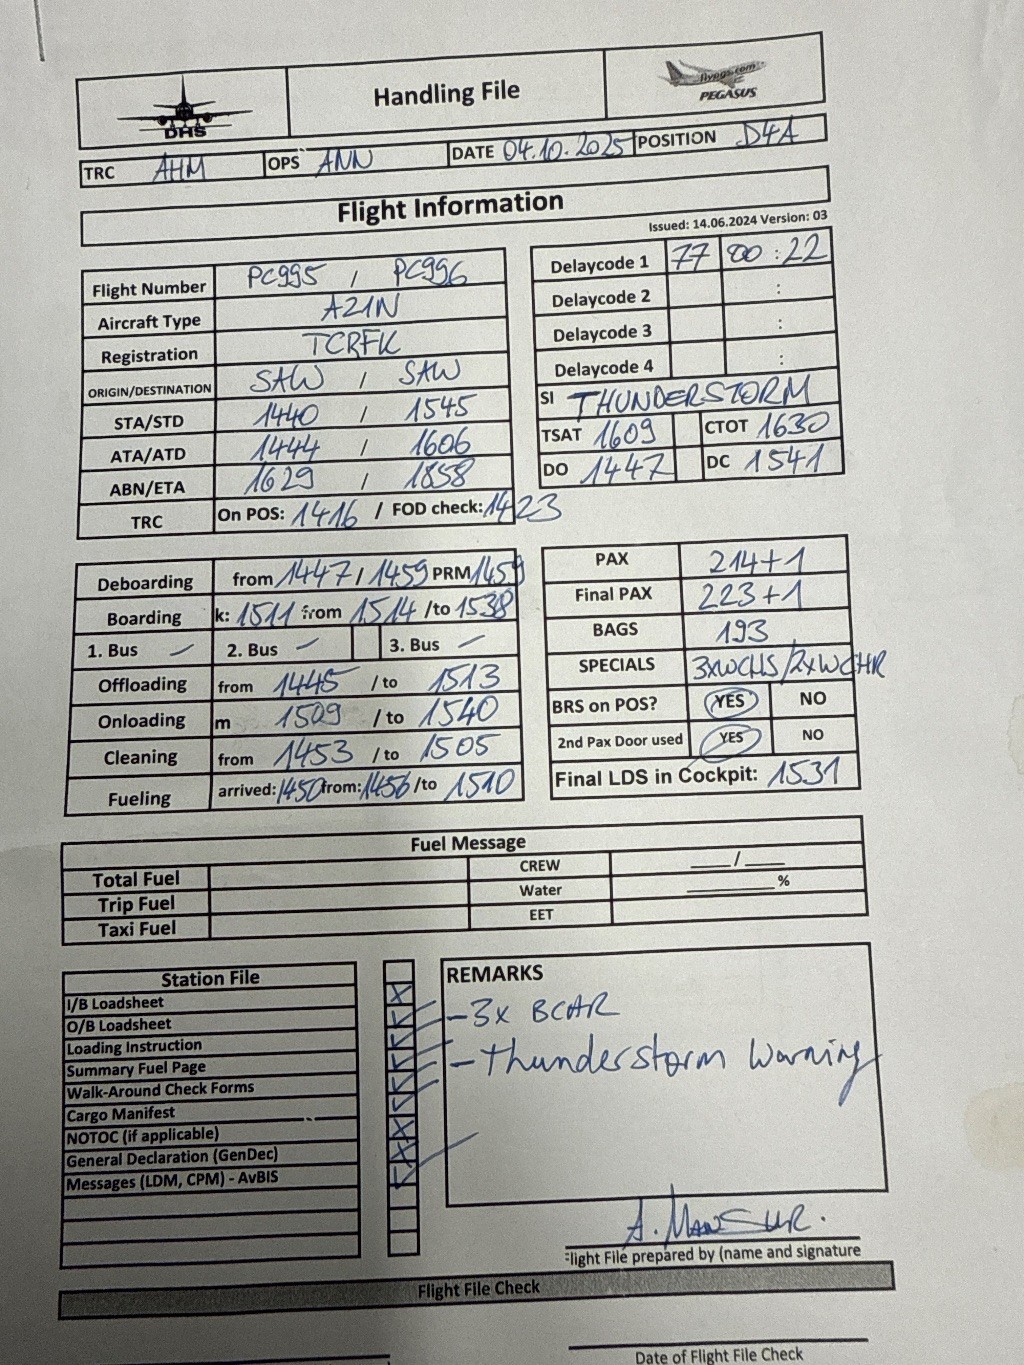 DHS
Handling File
flypgs.com
PEGASUS
TRC AHM OPS ANN DATE 04.10.2025 POSITION D4A
Flight Information
Issued: 14.06.2024 Version: 03
Flight Number PC995 / PC996
Aircraft Type A21N
Registration TCRFK
ORIGIN/DESTINATION SAW / SAW
STA/STD 1440 / 1545
ATA/ATD 1444 / 1606
ABN/ETA 1629 / 1858
TRC On POS: 1416 / FOD check: 1423
Delaycode 1 77 00:22
Delaycode 2 :
Delaycode 3 :
Delaycode 4 :
SI THUNDERSTORM
TSAT 1609 CTOT 1630
DO 1447 DC 1541
Deboarding from 1447 / 1459 PRM 1459
Boarding k: 1511 from 1514 /to 1538
1. Bus – 2. Bus – 3. Bus –
Offloading from 1445 /to 1513
Onloading m 1509 /to 1540
Cleaning from 1453 /to 1505
Fueling arrived: 1450 from: 1456 /to 1510
PAX 214+1
Final PAX 223+1
BAGS 193
SPECIALS 3xWCHS/2xWCHR
BRS on POS? YES NO
2nd Pax Door used YES NO
Final LDS in Cockpit: 1531
Fuel Message
Total Fuel CREW ___/___
Trip Fuel Water ______%
Taxi Fuel EET
Station File
I/B Loadsheet
O/B Loadsheet
Loading Instruction
Summary Fuel Page
Walk-Around Check Forms
Cargo Manifest
NOTOC (if applicable)
General Declaration (GenDec)
Messages (LDM, CPM) - AvBIS
REMARKS
-3x BCAR
-Thunderstorm Warning
A. MANSUR.
Flight File prepared by (name and signature
Flight File Check
Date of Flight File Check